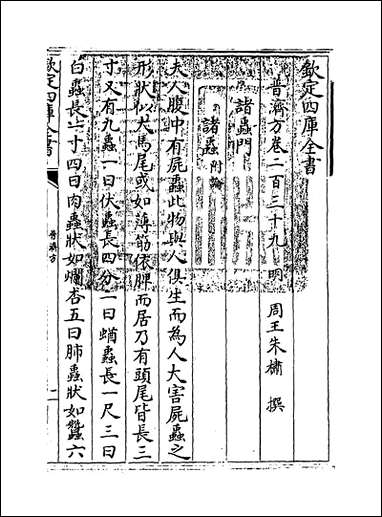 欽定四庫全書
普濟方卷二百三十九　明　周王朱橚　撰
諸蟲門
諸蟲附論
夫人腹中有屍蟲此物與人俱生而為人大害屍蟲之
形狀似犬馬尾或如薄筋依脾而居乃有頭尾皆長三
寸又有九蟲一曰伏蟲長四分二曰蛕蟲長一尺三曰
白蟲長一寸四曰肉蟲狀如爛杏五曰肺蟲狀如蠶六
欽定四庫全書
普濟方
一